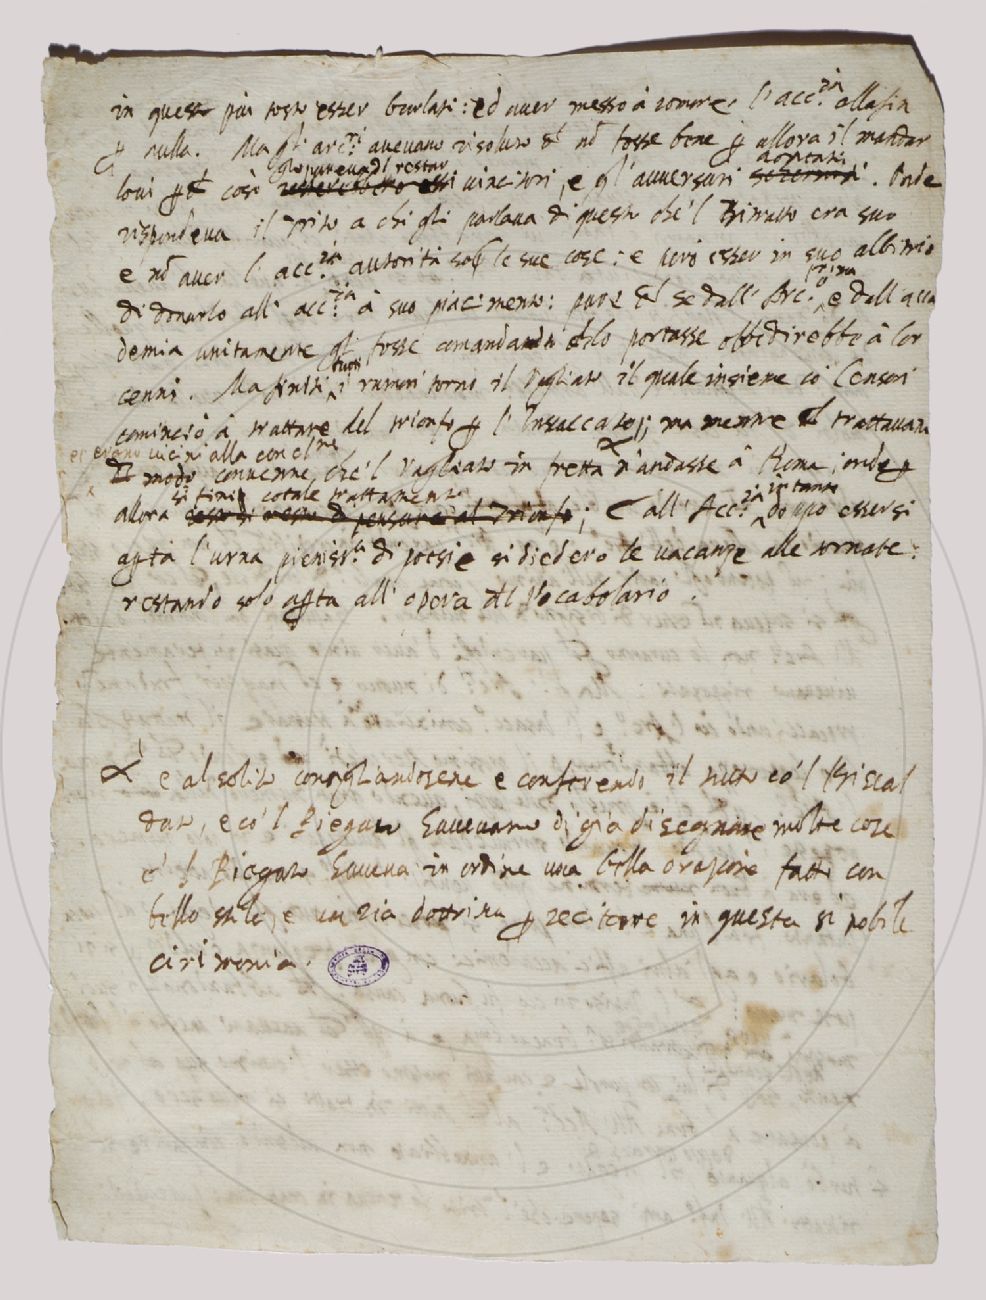 in questo più tosto esser burlati: ed aver messo à romore l'acc.ia alla fin
p nulla. Ma gl' arc.i avevano risoluto che nõ fosse bene p allora il mandar
gli pareva di restar
lovi così vincitori, e gl' avversari . Onde
rispondeva il Trito a chi gli parlava di questo che'l era suo
e nõ aver l' acc.ia autorità sop.a le sue cose: e però esser in suo albitrio
di donarlo all' acc.ia à suo piacimento: pure che se dall' Arc.o e dall' acca
demia unitamente gli fosse comandando portasse obbedirebbe à lor
cenni. Ma finiti i rumori tornò il Vagliato il quale insieme co' Censori
cominciò à trattare del trionfo p l' Insaccato; ma mentre trattavan
et erano vicini alla
modo convenne, che'l Vagliato in fretta n'andasse à Roma, onde p
si finì cotale trattamento
allora resto di pensare al Trionfo; E all' Acc.ia doppo essersi
apta l'urna pieniss.a di poesie si diedero le vacanze alle tornate:
restando solo apta all' opera del Vocabolario.
e al solito consigliandosene e conferendo il tutto co'l Riscal
dato, e co'l Piegato havevano di già disegnare molte cose
e'l Piegato haveva in ordine una bella orazione fatti con
bello stile, e varia dottrina p recitare in questa sì nobile
cirimonia.